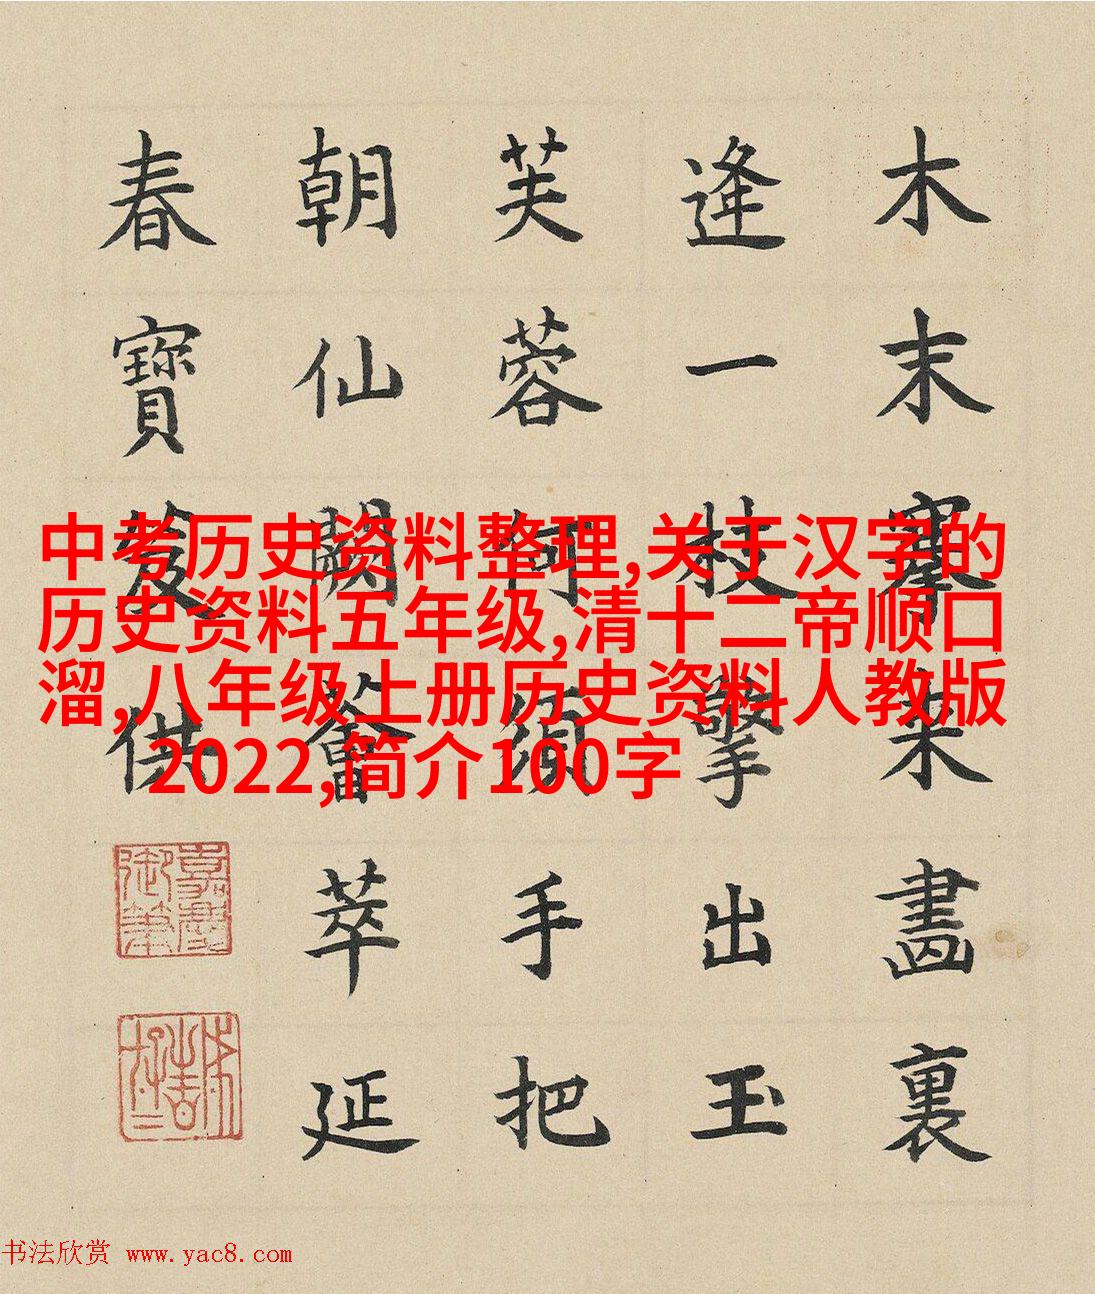 木末搴來畫裏
逢一枝擎出玉
芙蓉何須手把
朝仙闕薈萃延
春寶笈供
嘉慶御筆
中考历史资料整理,关于汉字的
历史资料五年级,清十二帝顺口
溜,八年级上册历史资料人教版
2022,简介100字
书法欣赏 www.yac8.com